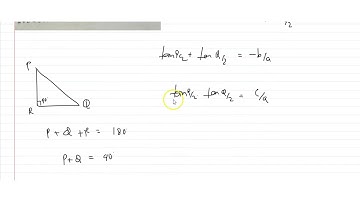 12
tan P/2 + tan Q/2 = -b/a
P
90°
R
Q
tan P/2 tan Q/2 = c/a
P + Q + R = 180°
P+Q = 90°